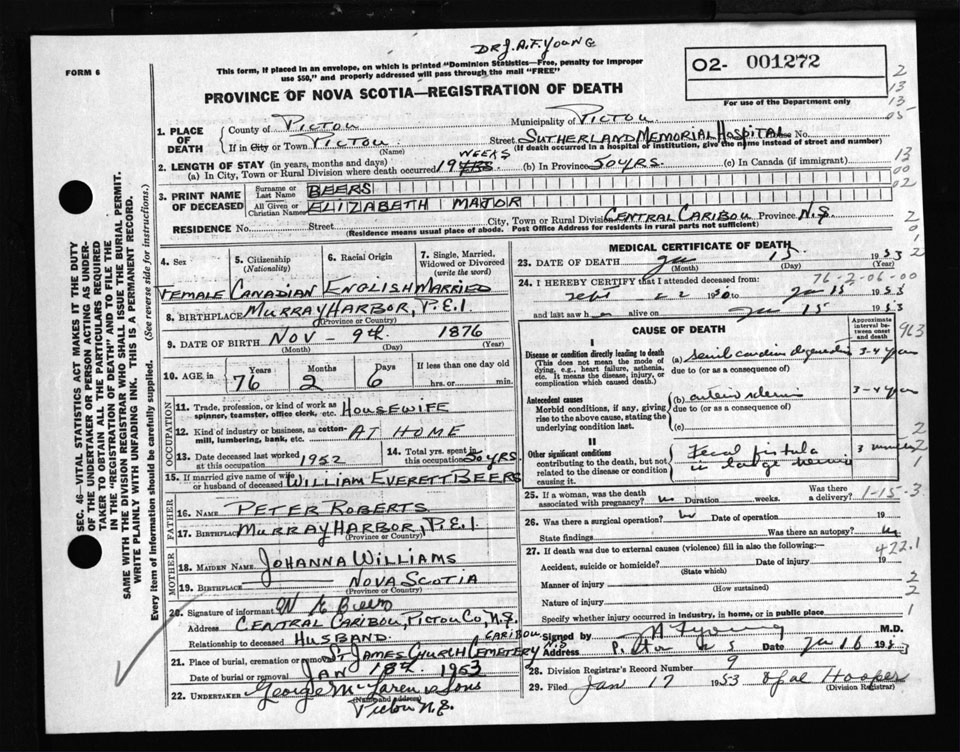 DR J. A. F. YOUNG
FORM 6
This form, if placed in an envelope, on which is printed "Dominion Statistics—Free, penalty for improper
use $50," and properly addressed will pass through the mail "FREE"
O2- 001272
For use of the Department only
PROVINCE OF NOVA SCOTIA—REGISTRATION OF DEATH
1. PLACE OF DEATH
County of PICTOU Municipality of PICTOU
If in City or Town PICTOU (Name) Street SUTHERLAND MEMORIAL HOSPITAL House No.
(If death occurred in a hospital or institution, give the name instead of street and number)
2. LENGTH OF STAY (in years, months and days)
(a) In City, Town or Rural Division where death occurred 19 YRS. WEEKS (b) In Province 50 YRS. (c) In Canada (if immigrant)
3. PRINT NAME OF DECEASED
Surname or Last Name BEERS
All Given or Christian Names ELIZABETH MAJOR
RESIDENCE No. Street City, Town or Rural Division CENTRAL CARIBOU Province N.S.
(Residence means usual place of abode. Post Office Address for residents in rural parts not sufficient)
SEC. 46—VITAL STATISTICS ACT MAKES IT THE DUTY
OF THE UNDERTAKER OR PERSON ACTING AS UNDER-
TAKER TO OBTAIN ALL THE PARTICULARS REQUIRED
IN THE "REGISTRATION OF DEATH" AND TO FILE THE
SAME WITH THE DIVISION REGISTRAR WHO SHALL ISSUE THE BURIAL PERMIT.
WRITE PLAINLY WITH UNFADING INK. THIS IS A PERMANENT RECORD.
Every item of Information should be carefully supplied. (See reverse side for instructions.)
4. Sex 5. Citizenship (Nationality) 6. Racial Origin 7. Single, Married, Widowed or Divorced (write the word)
FEMALE CANADIAN ENGLISH MARRIED
8. BIRTHPLACE MURRAY HARBOR, P.E.I.
(Province or Country)
9. DATE OF BIRTH NOV - 9th. 1876
(Month) (Day) (Year)
10. AGE in Years 76 Months 2 Days 6 If less than one day old hrs. or min.
OCCUPATION
11. Trade, profession, or kind of work as spinner, teamster, office clerk, etc. HOUSEWIFE
12. Kind of industry or business, as cotton-mill, lumbering, bank, etc. AT HOME
13. Date deceased last worked at this occupation 1952 14. Total yrs. spent in this occupation 50 YRS
15. If married give name of wife or husband of deceased WILLIAM EVERETT BEERS
FATHER
16. Name PETER ROBERTS
17. Birthplace MURRAY HARBOR, P.E.I.
(Province or Country)
MOTHER
18. MAIDEN NAME JOHANNA WILLIAMS
19. Birthplace NOVA SCOTIA
(Province or Country)
20. Signature of informant W E Beers
Address CENTRAL CARIBOU, PICTOU CO., N.S.
Relationship to deceased HUSBAND.
21. Place of burial, cremation or removal ST JAMES CHURCH CEMETERY CARIBOU N.S
Date of burial or removal JAN 18th. 1953
22. UNDERTAKER GEORGE MCLAREN & SONS
(Name and address)
PICTOU N.S.
MEDICAL CERTIFICATE OF DEATH
23. DATE OF DEATH Jan 15 1953
(Month) (Day) (Year)
24. I HEREBY CERTIFY that I attended deceased from: 76-2-06-00
Sept 22 1950 to Jan 15 1953
and last saw h er alive on Jan 15 1953
CAUSE OF DEATH
Approximate interval between onset and death
963
I
Disease or condition directly leading to death (a) Senile cardiac degeneration 3-4 years
(This does not mean the mode of dying, e.g., heart failure, asthenia, etc. It means the disease, injury, or complication which caused death.) due to (or as a consequence of)
Antecedent causes (b) arterio sclerosis 3-4 years
Morbid conditions, if any, giving rise to the above cause, stating the underlying condition last. due to (or as a consequence of)
(c)
II
Other significant conditions Fecal fistula 3 months
contributing to the death, but not related to the disease or condition causing it. in large hernia
25. If a woman, was the death associated with pregnancy? no Duration weeks. Was there a delivery? 1-15-3
26. Was there a surgical operation? no Date of operation 19
State findings Was there an autopsy? no
27. If death was due to external causes (violence) fill in also the following:— 422.1
Accident, suicide or homicide? Date of injury 19
(State which)
Manner of injury
(How sustained)
Nature of injury
Specify whether injury occurred in industry, in home, or in public place
Signed by J A F Young M.D.
Address Pictou N S Date Jan 16 195
28. Division Registrar's Record Number 9
29. Filed Jan 17 1953 Opal Hooper
(Division Registrar)